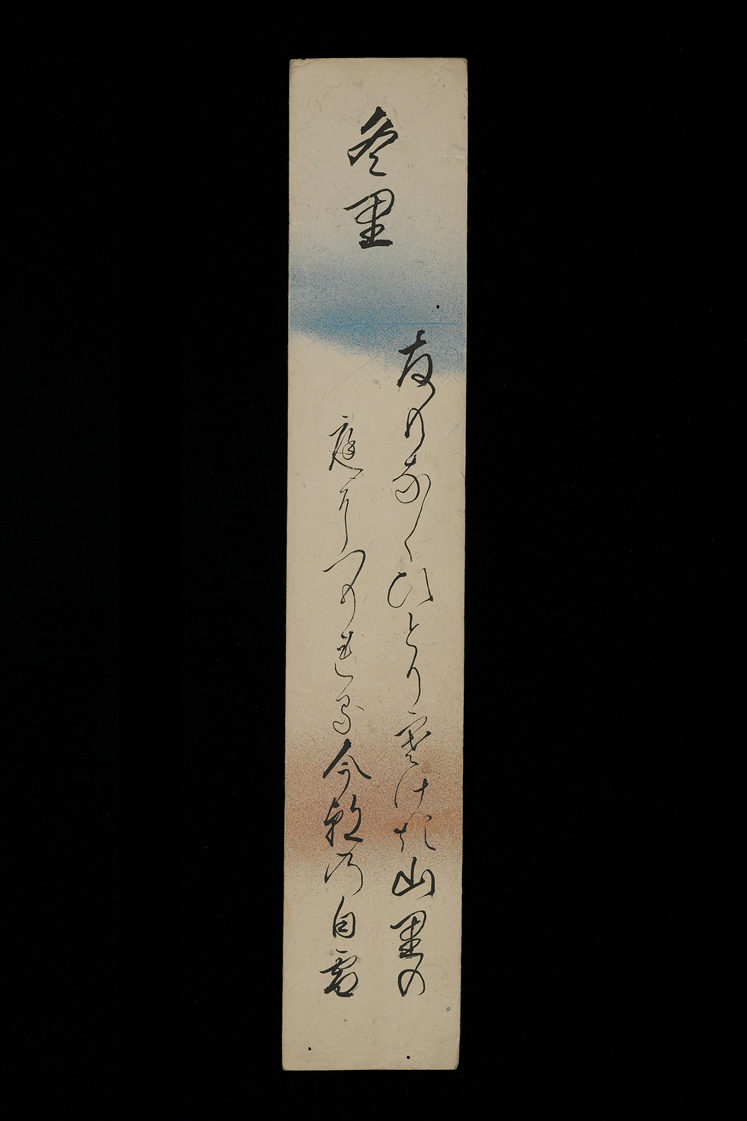 冬里
友もなくひとり寒けき山里の
庭につもれる今朝の白雪